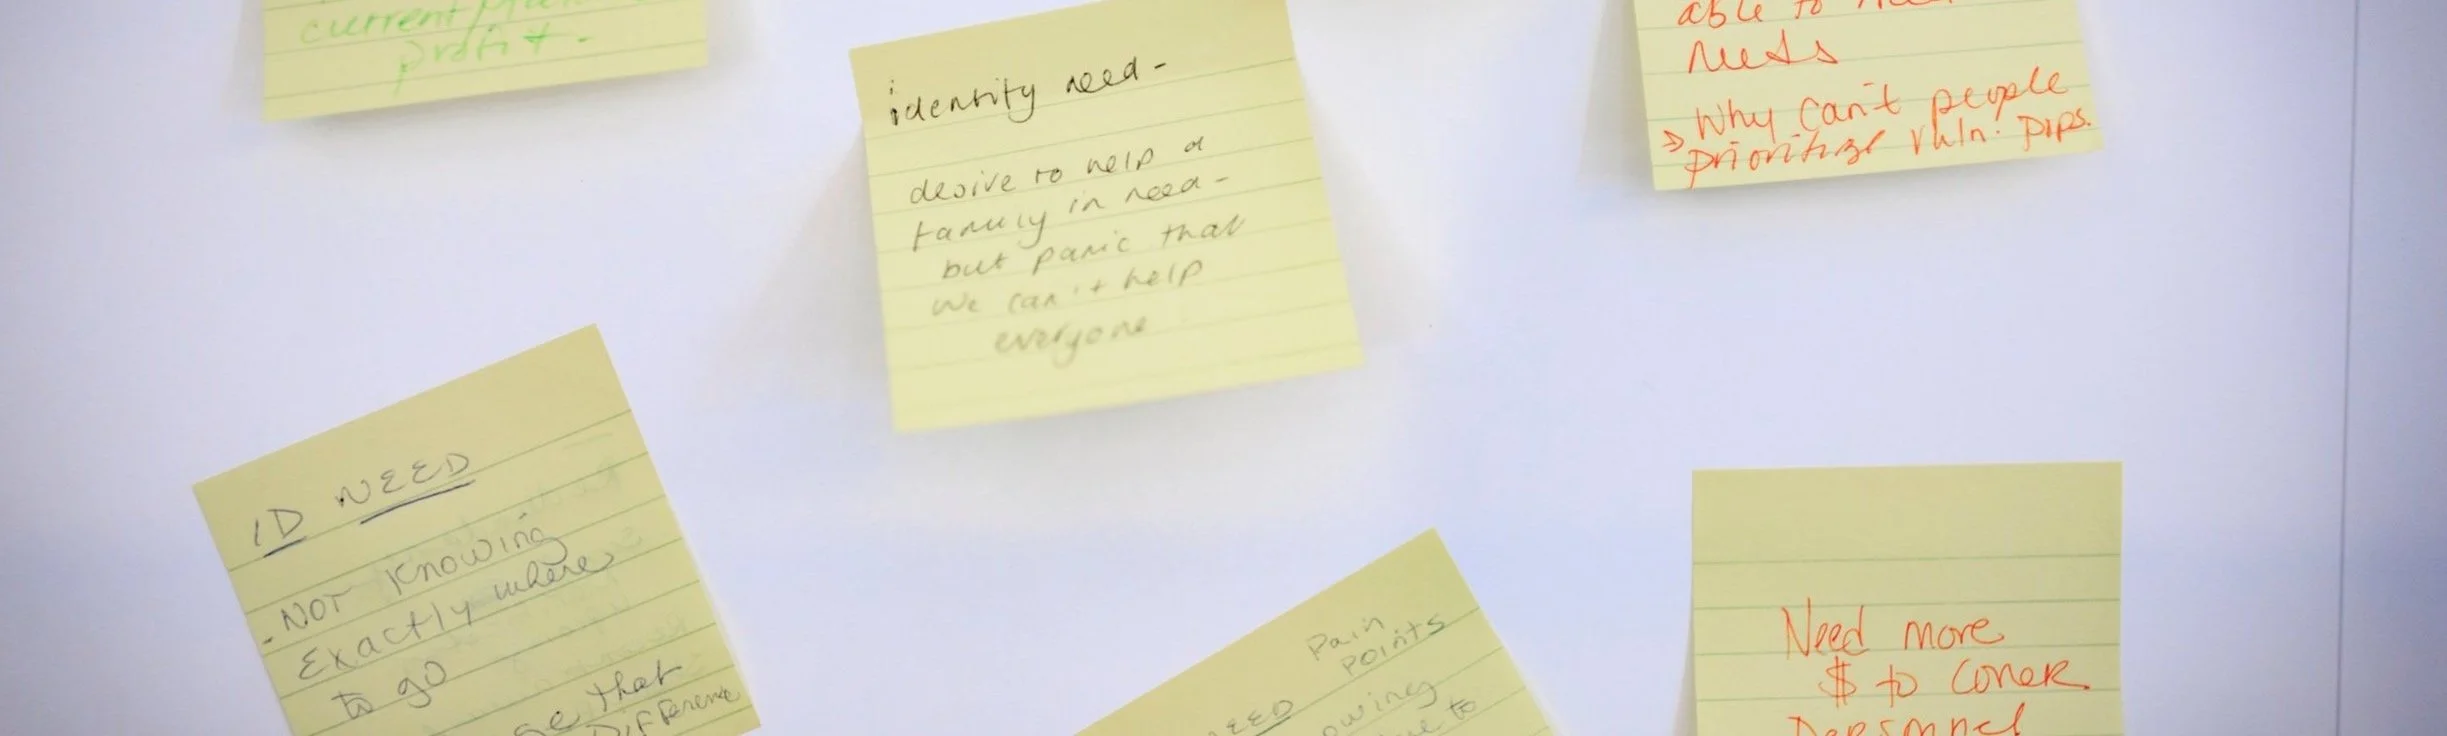 current
profit.
identity need -
desire to help a
family in need -
but panic that
we can't help
everyone
able to
needs
» Why can't people
prioritize vuln. pops.
ID NEED
- NOT Knowing
Exactly where
to go
that
Difference
Pain
Points
Need more
$ to cover
Personnel